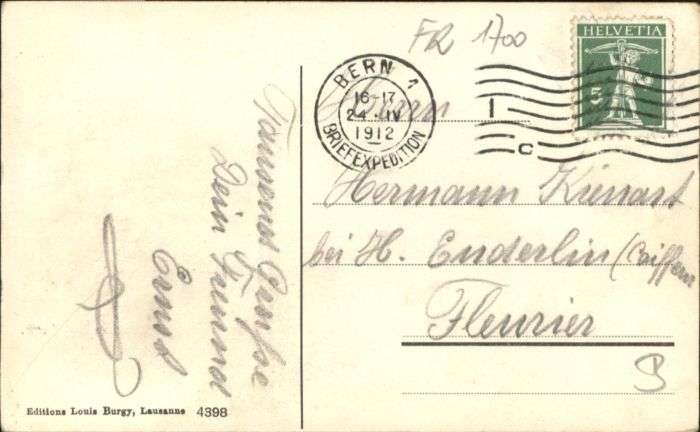 FR 1700
HELVETIA
5
BERN 1
16-17
24 · IV
1912
BRIEFEXPEDITION
Herrn
Hermann Kienast
bei H. Enderlin (Coiffeur
Fleurier
Tausend Grüsse
Dein Freund
Ernst
Editions Louis Burgy, Lausanne 4398